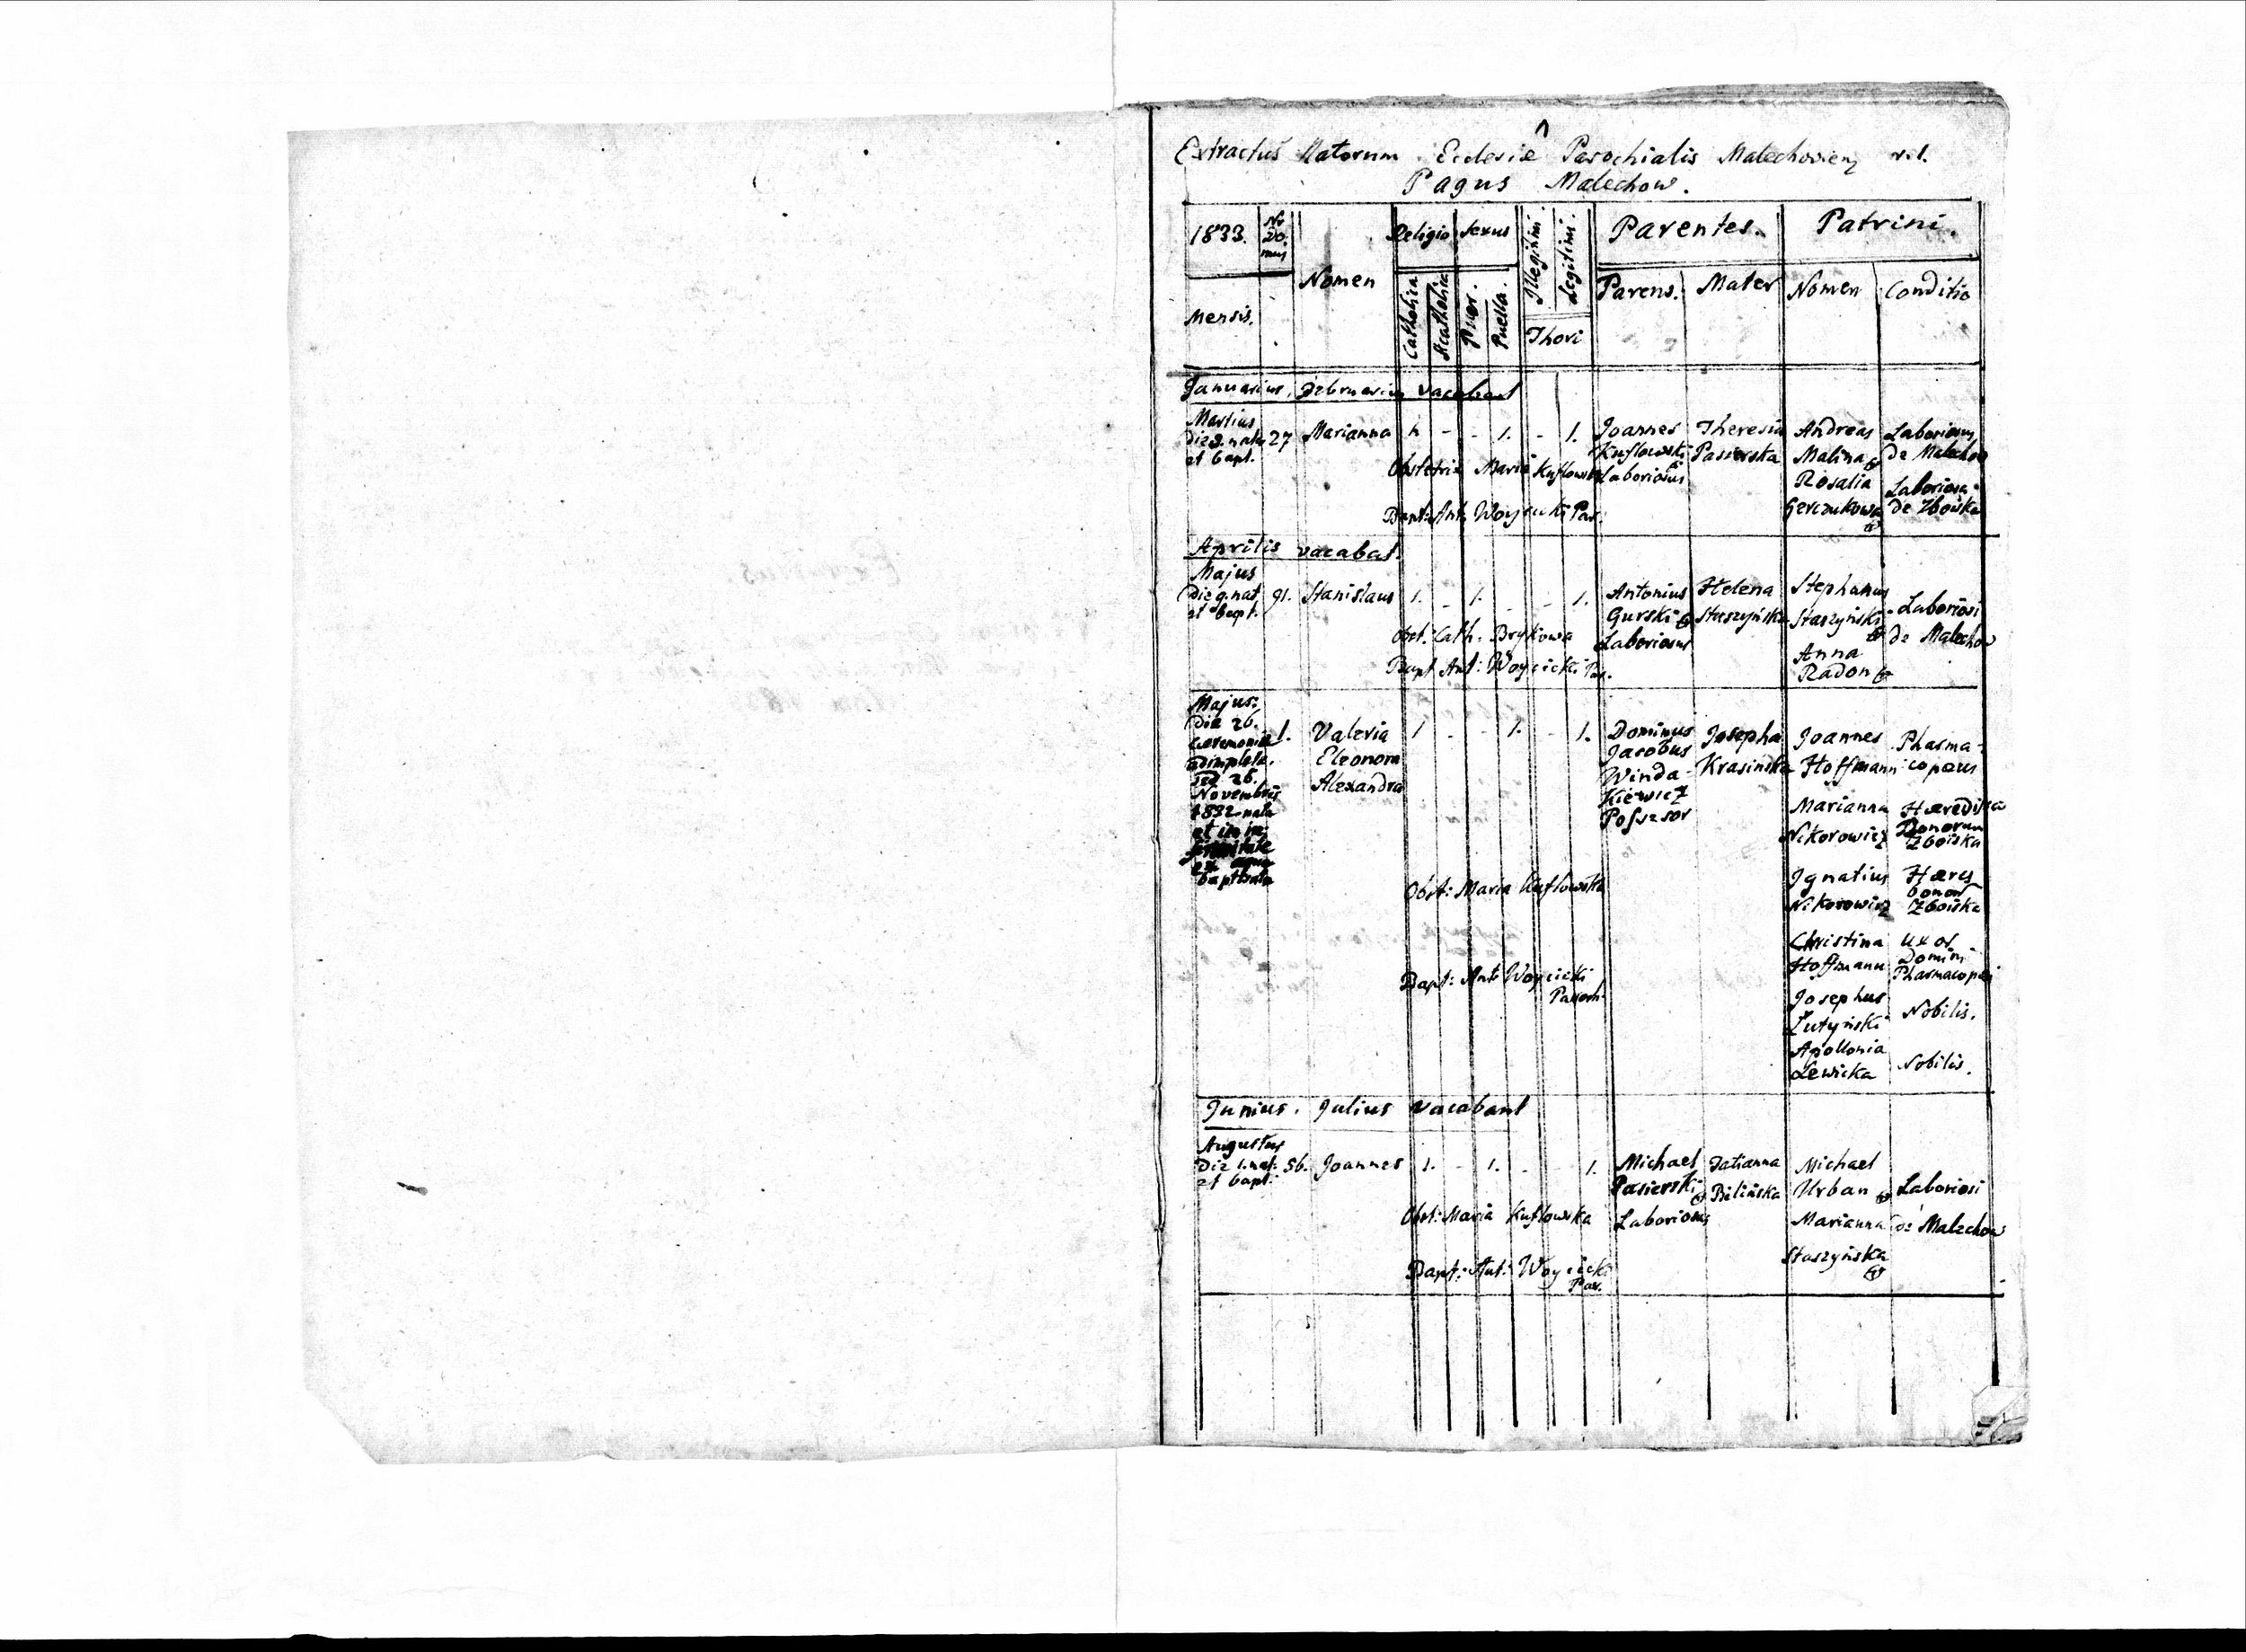 Extractus Natorum Ecclesiæ Parochialis Malechovienz r.l.
Pagus Malechow.
1833. No Do. mus Nomen Religio Sexus Illegitimi. Legitimi. Parentes. Patrini.
Mensis. Catholica Acatholica Puer. Puella. Thori Parens. Mater Nomen Conditio
Januarius, Februarius vacabant
Martius
die 8. nata 27 Marianna 1. - - 1. - 1. Joannes Theresia Andreas Laboriosus
et bapt. Kuflowski Pasierska Malina de Malechow
Obstetrix Maria Kuflowska Laboriosus Rosalia Laboriosa
Bapt: Ant: Woycicki Par. Gerczukowa de Zboiska
Aprilis vacabat.
Majus
die 9. nat. 91. Stanislaus 1. - 1. - - 1. Antonius Helena Stephanus
et bapt. Gurski Staszyńska Staszyński Laboriosi
Obst: Cath. Brykowa Laboriosus de Malechow
Bapt Ant: Woycicki Par. Anna
Radon
Majus:
die 26. 1. Valeria 1 - - 1. - 1. Dominus Josepha Joannes Pharma-
ceremonia Eleonora Jacobus Krasińska Hoffmann copæus
adimpleta. Alexandra Winda-
sed 26. kiewicz
Novembris Possesor Marianna Hæredissa
1832. nata Nikorowicz Bonorum
et in Zboiska
ex aqua
baptisata Ignatius Hæres
Obst: Maria Kuflowska Nikorowicz bonor Zboiska
Christina Uxor
Hoffmann Domini
Bapt: Ant Woycicki Pharmacopæi
Paroch. Josephus
Żutyński Nobilis.
Apollonia
Lewicka Nobilis.
Junius. Julius vacabant
Augustus
Die 1. nat. 56. Joannes 1. - 1. - - 1. Michael Tatianna Michael
et bapt: Pasierski Bilińska Urban Laboriosi
Obst: Maria Kuflowska Laboriosus Marianna de Malechow
Staszyńska
Bapt: Ant: Woycicki
Par.